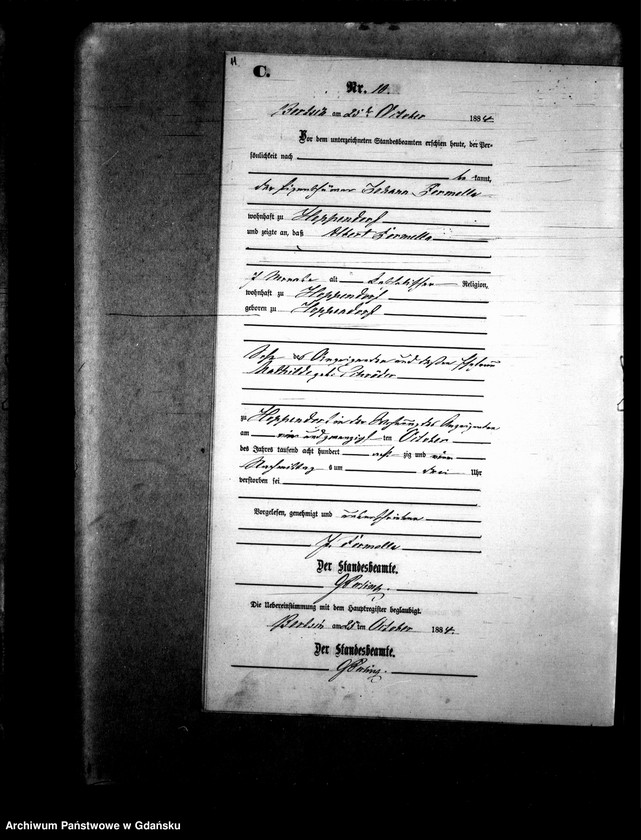 11
C.
Nr. 10.
am 25ten October 1884.
Vor dem unterzeichneten Standesbeamten erschien heute, der Per-
sönlichkeit nach
be kannt,
der Eigenthümer Johann Formella
wohnhaft zu Hoppendorf
und zeigte an, daß Albert Formella
7 Monate alt katholischer Religion,
wohnhaft zu Hoppendorf
geboren zu Hoppendorf
Sohn des Anzeigenden und dessen Ehefrau
Mathilde geb. Schröder
zu Hoppendorf in der Wohnung des Anzeigenden
am ein und zwanzigsten October
des Jahres tausend acht hundert acht zig und vier
Nachmittag s um drei Uhr
verstorben sei.
Vorgelesen, genehmigt und unterschrieben
J. Formella
Der Standesbeamte.
Die Uebereinstimmung mit dem Hauptregister beglaubigt.
am 25 ten October 1884.
Der Standesbeamte.
Archiwum Państwowe w Gdańsku